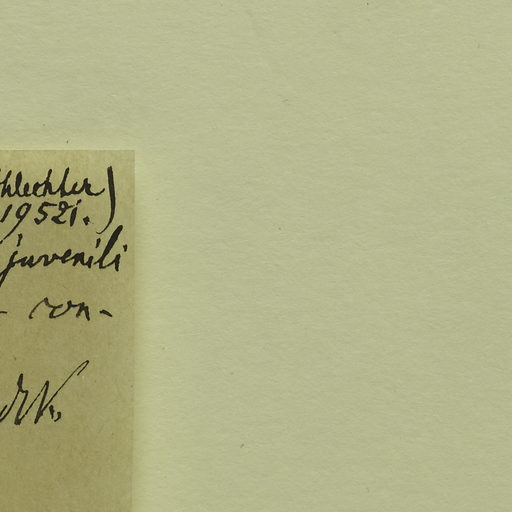 chlechter)
19521.)
juvenili
- con-